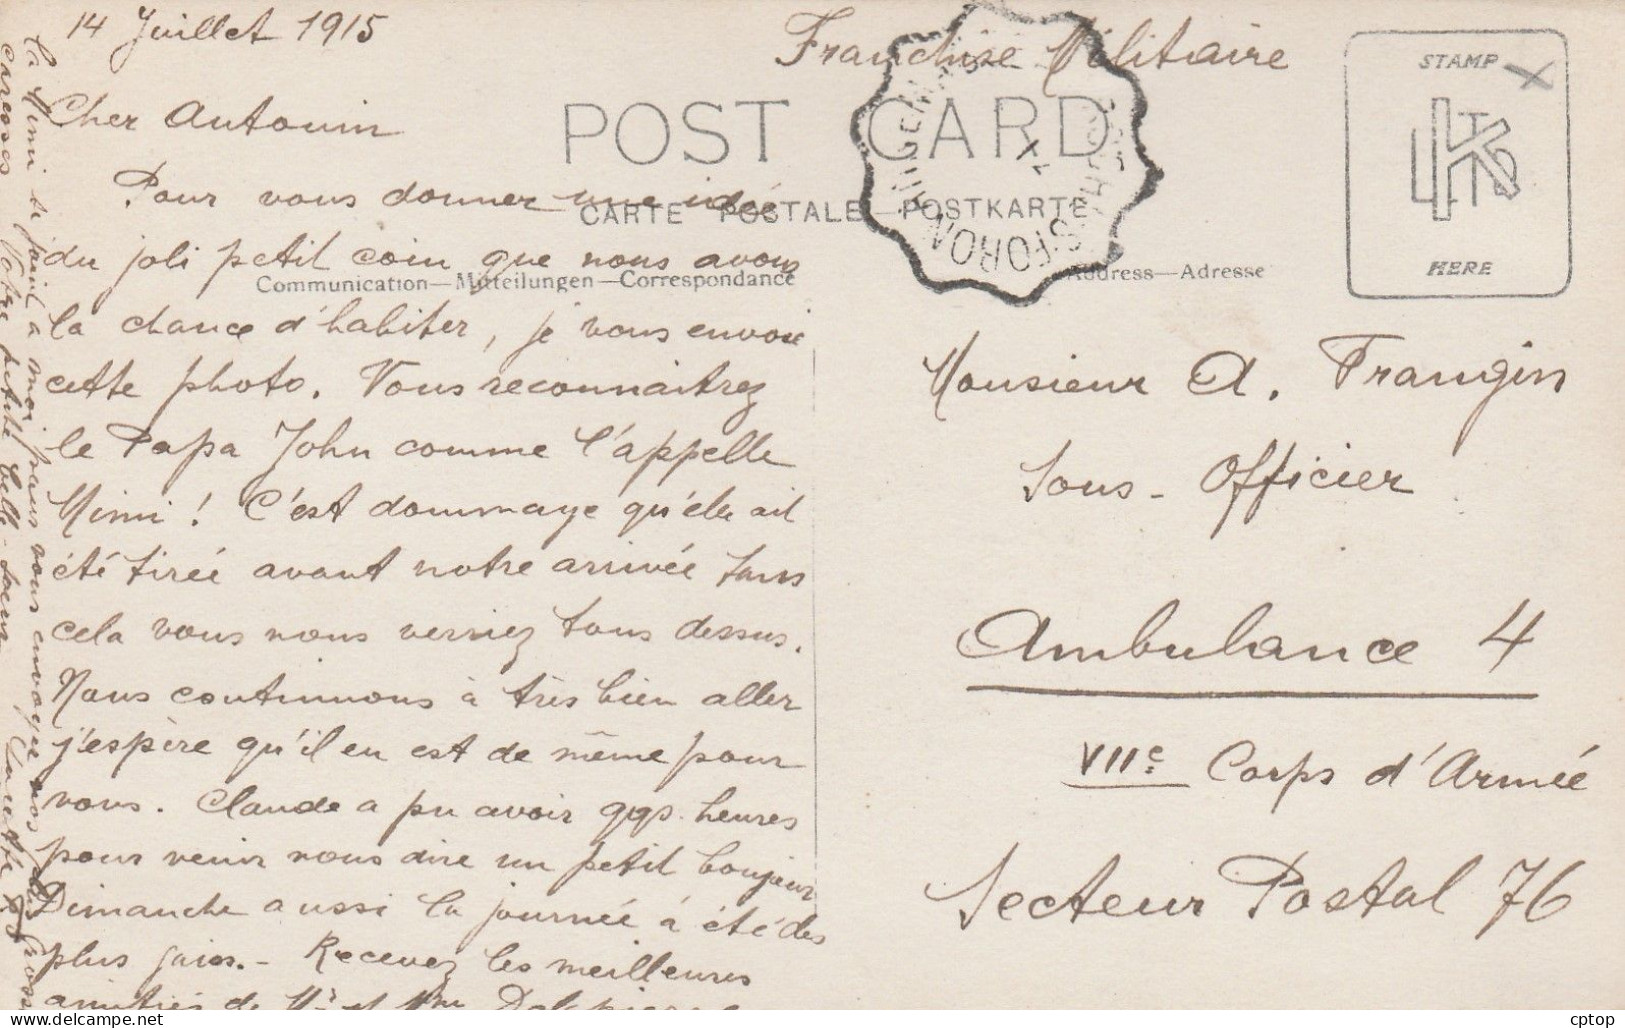 14 Juillet 1915
Franchise Militaire
STAMP
HERE
POST CARD
CARTE POSTALE—POSTKARTE
Communication—Mitteilungen—Correspondance
Address—Adresse
Cher Antonin
Pour vous donner une idée
du joli petit coin que nous avons
la chance d'habiter, je vous envoie
cette photo. Vous reconnaitrez
le Papa John comme l'appelle
Mimi ! C'est dommage qu'elle ait
été tirée avant notre arrivée sans
cela vous nous verriez tous dessus.
Nous continuons à très bien aller
j'espère qu'il en est de même pour
vous. Claude a pu avoir qqs. heures
pour venir nous dire un petit bonjour
Dimanche aussi la journée a été des
plus gaies.- Recevez les meilleures
amitiés de Mr et Mme Delapierre
La Mimi se joint à moi pour vous envoyer nos plus grosses
caresses Votre petite belle-soeur
Monsieur A. Frangin
Sous-Officier
Ambulance 4
VIIe Corps d'Armée
Secteur Postal 76
cptop